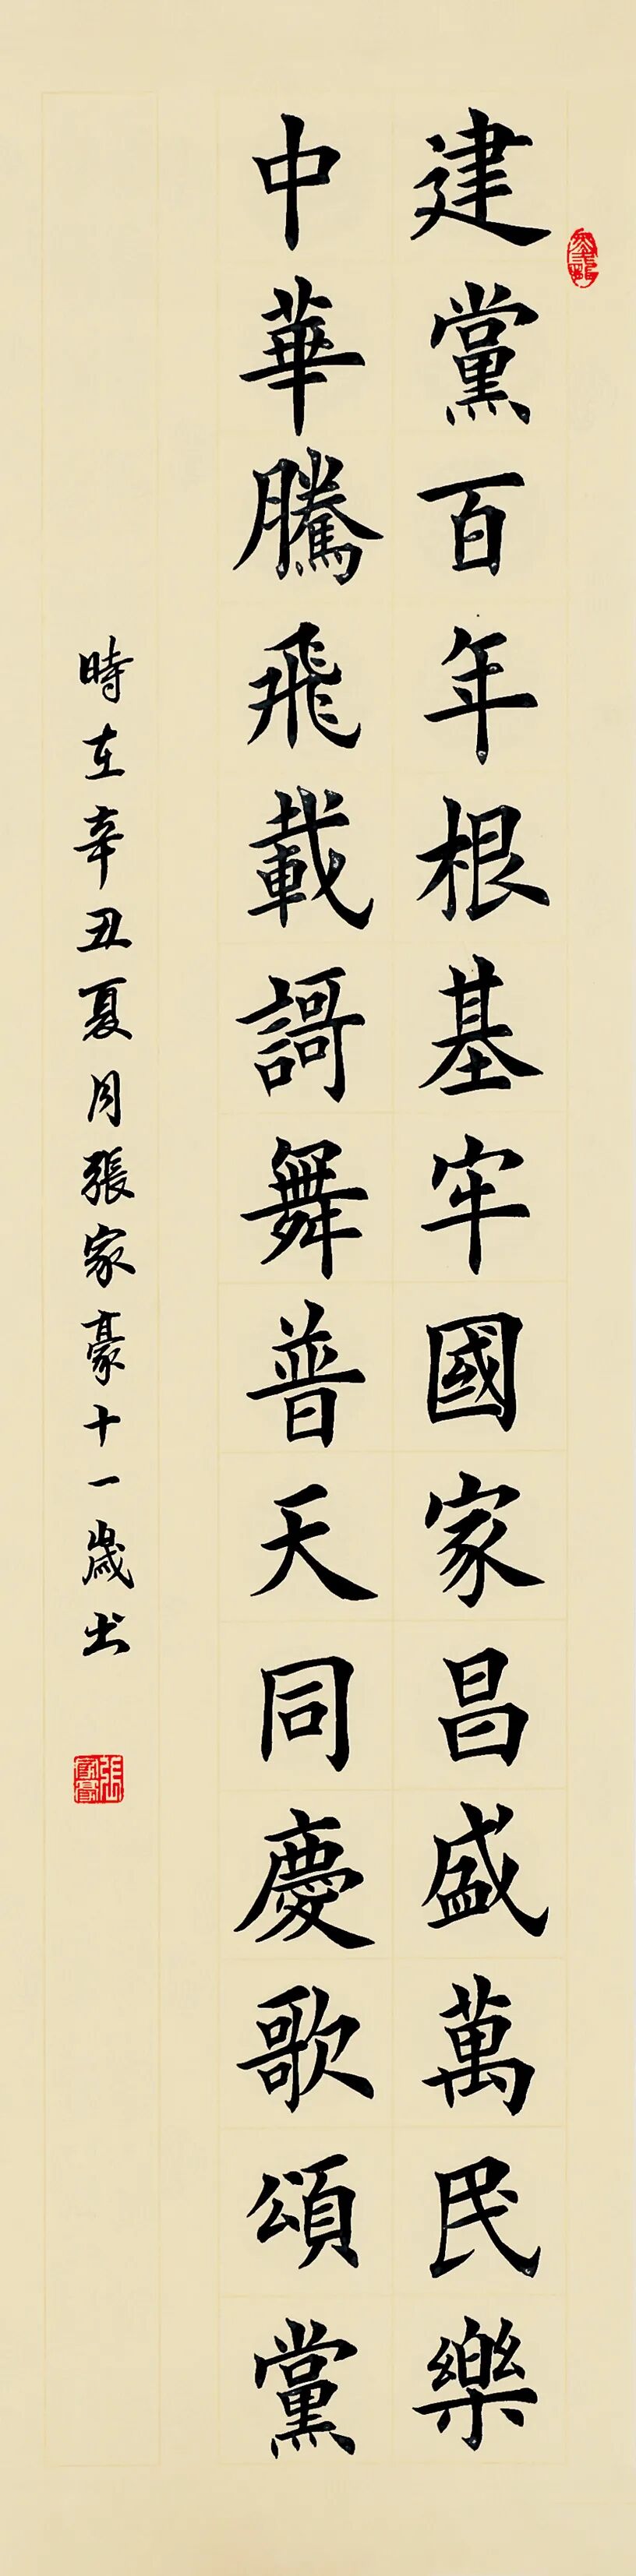 建黨百年根基牢國家昌盛萬民樂
中華騰飛載謌舞普天同慶歌頌黨
時在辛丑夏月張家豪十一歲书
張家豪